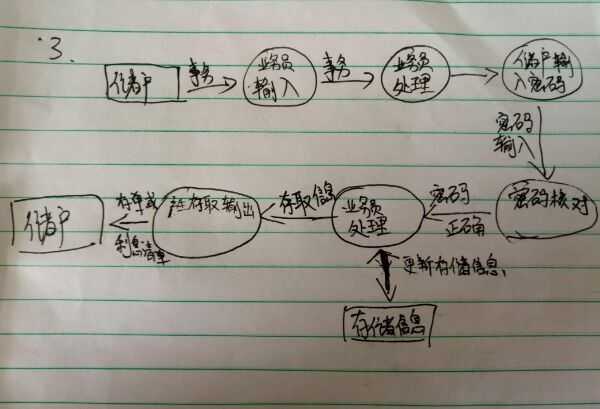 3.
储户
事务
业务员
输入
事务
业务员
处理
储户输
入密码
密码
输入
密码核对
密码
正确
业务员
处理
存取信息
存取输出
存单或
利息清单
储户
更新存储信息
存储信息